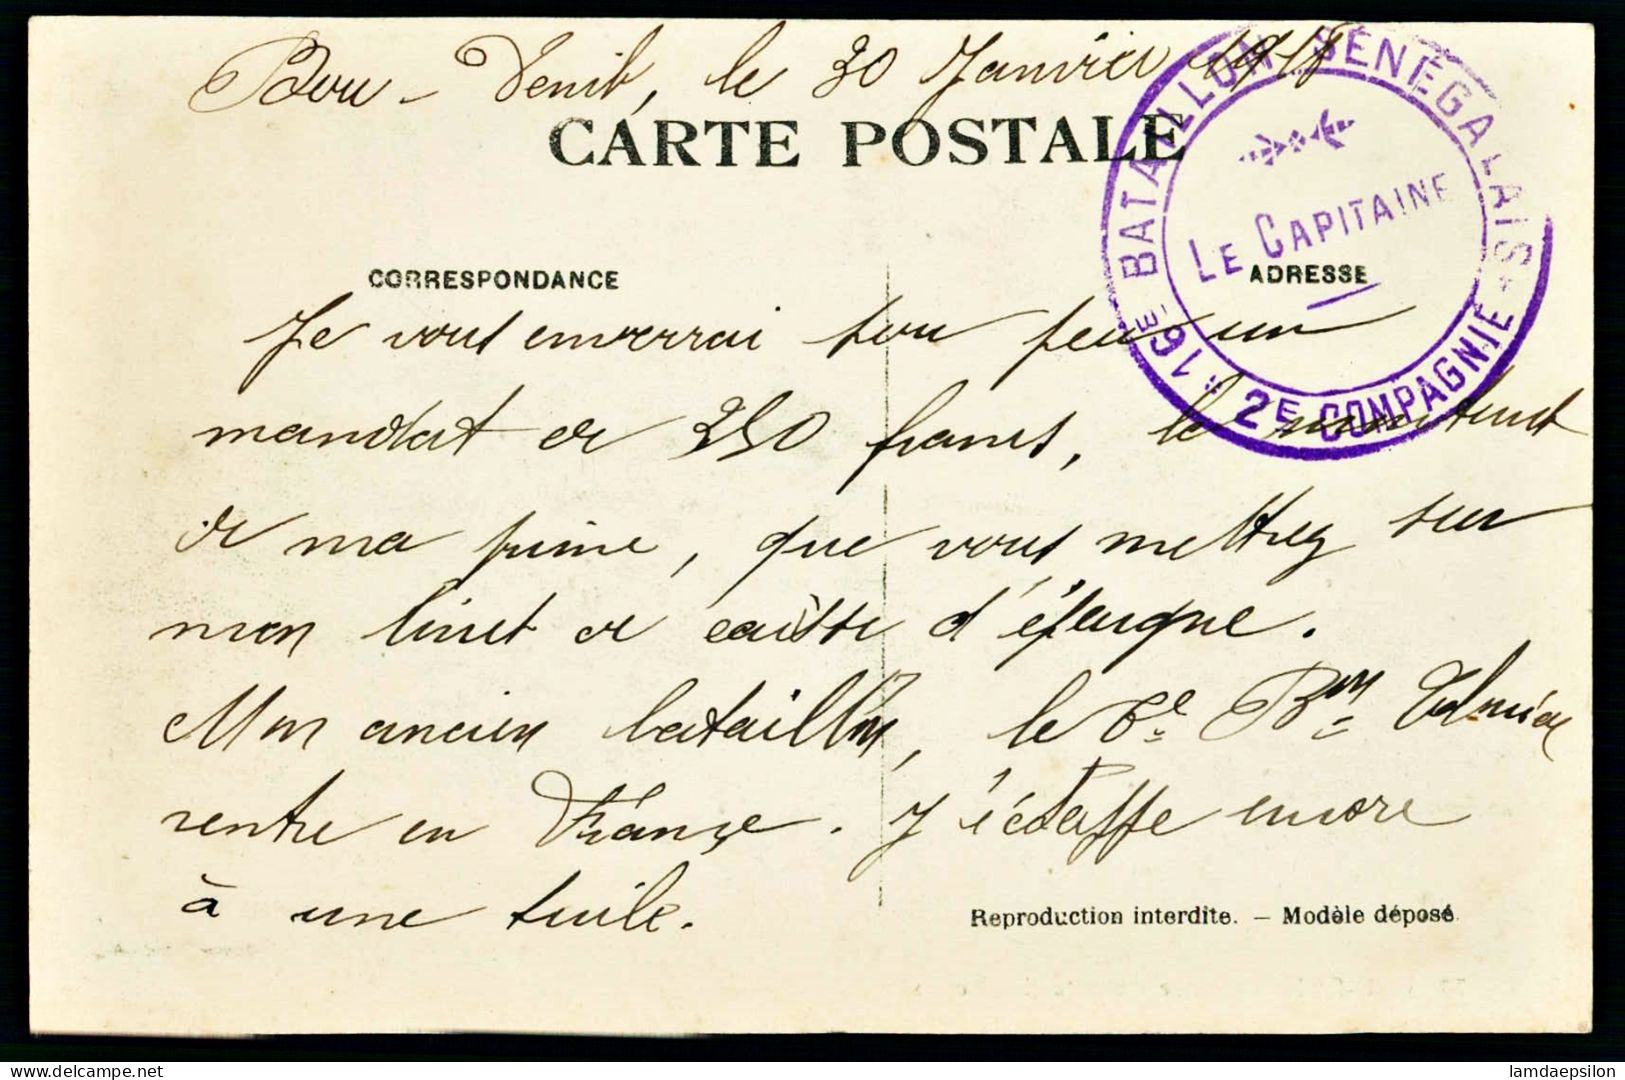 Bou-Denib, le 30 Janvier 1918
CARTE POSTALE
16E BATAILLON SÉNÉGALAIS
LE CAPITAINE
2E COMPAGNIE
CORRESPONDANCE
ADRESSE
Je vous enverrai sou peu un
mandat de 250 francs, le montant
de ma prime, que vous mettrez sur
mon livret de caisse d'épargne.
Mon ancien bataillon, le 6e Bon
rentre en France. J'échappe encore
à une tuile.
Reproduction interdite. — Modèle déposé
lamdaepsilon